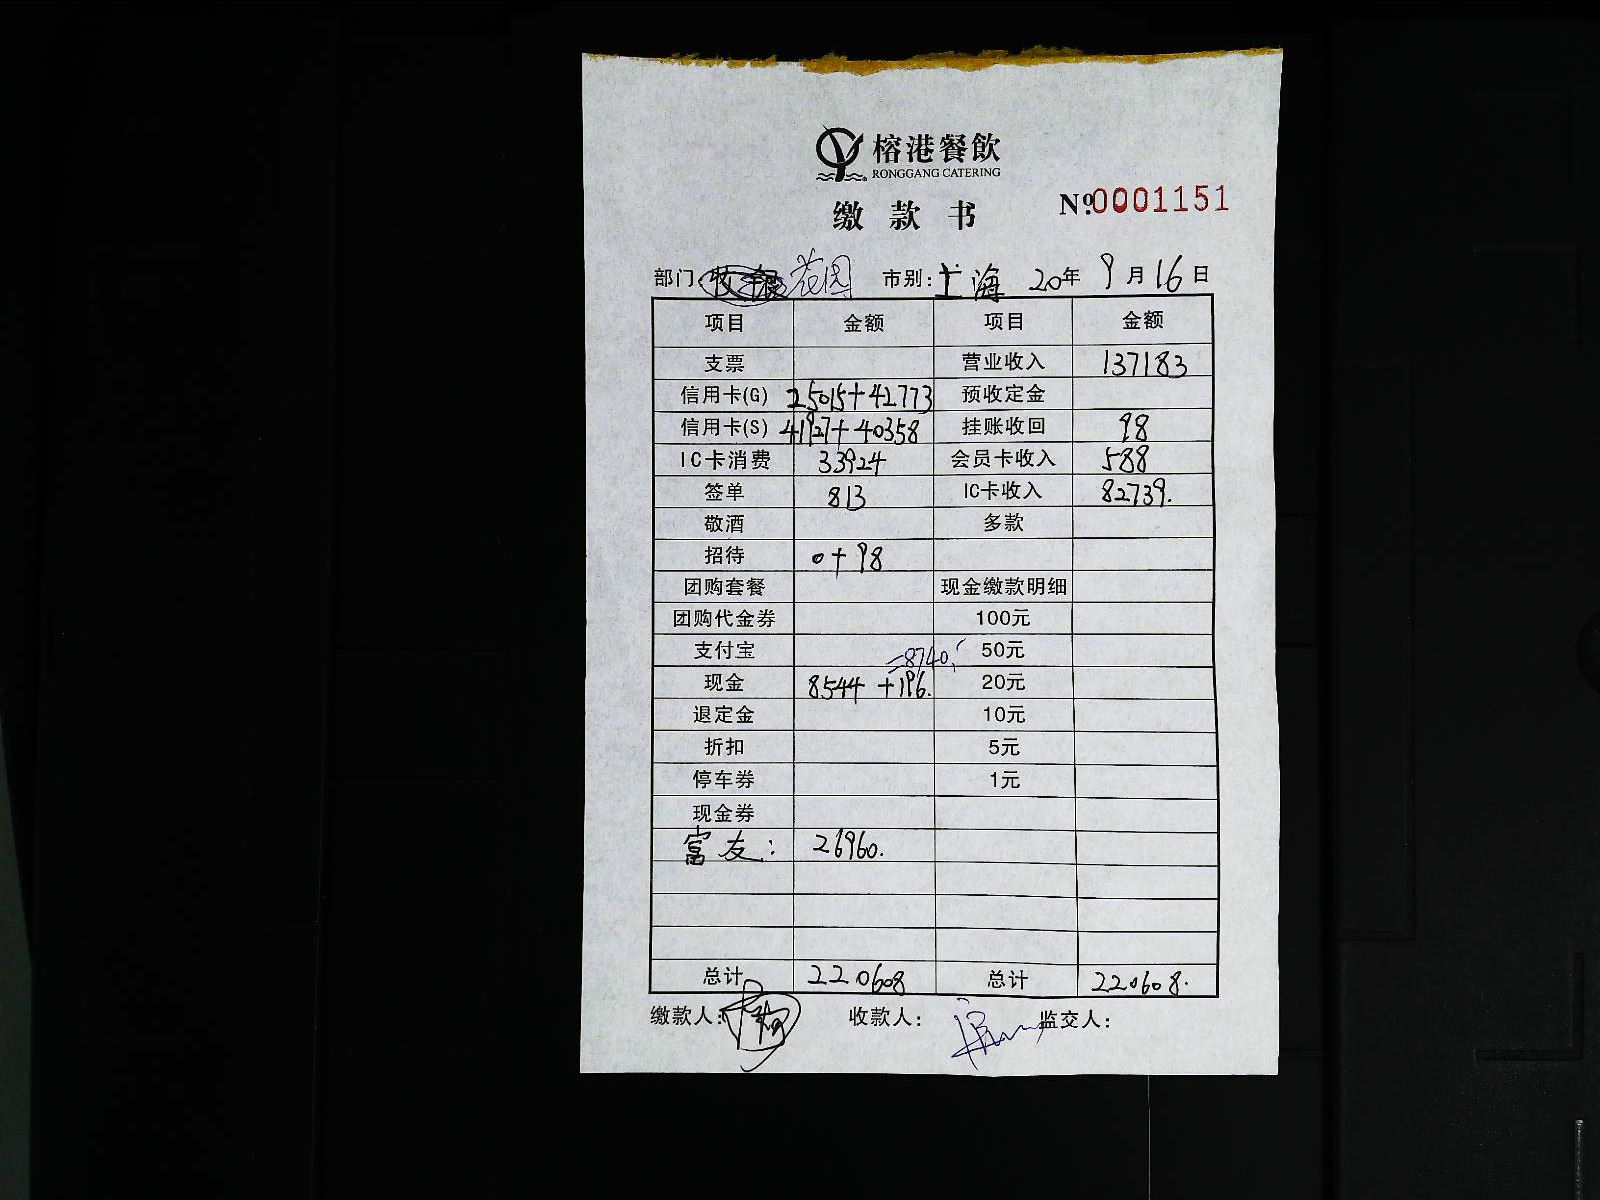 榕港餐飲
RONGGANG CATERING
缴款书
№0001151
部门:收银 花园 市别:上海 20年9月16日
项目 金额 项目 金额
支票 营业收入 137183
信用卡(G) 25015+42773 预收定金
信用卡(S) 41927+40358 挂账收回 98
IC卡消费 33924 会员卡收入 588
签单 813 IC卡收入 82739.
敬酒 多款
招待 0+98
团购套餐 现金缴款明细
团购代金券 100元
支付宝 50元
=8740.
现金 8544+196. 20元
退定金 10元
折扣 5元
停车券 1元
现金券
富友: 26960.
总计 220608 总计 220608.
缴款人: 收款人: 监交人: